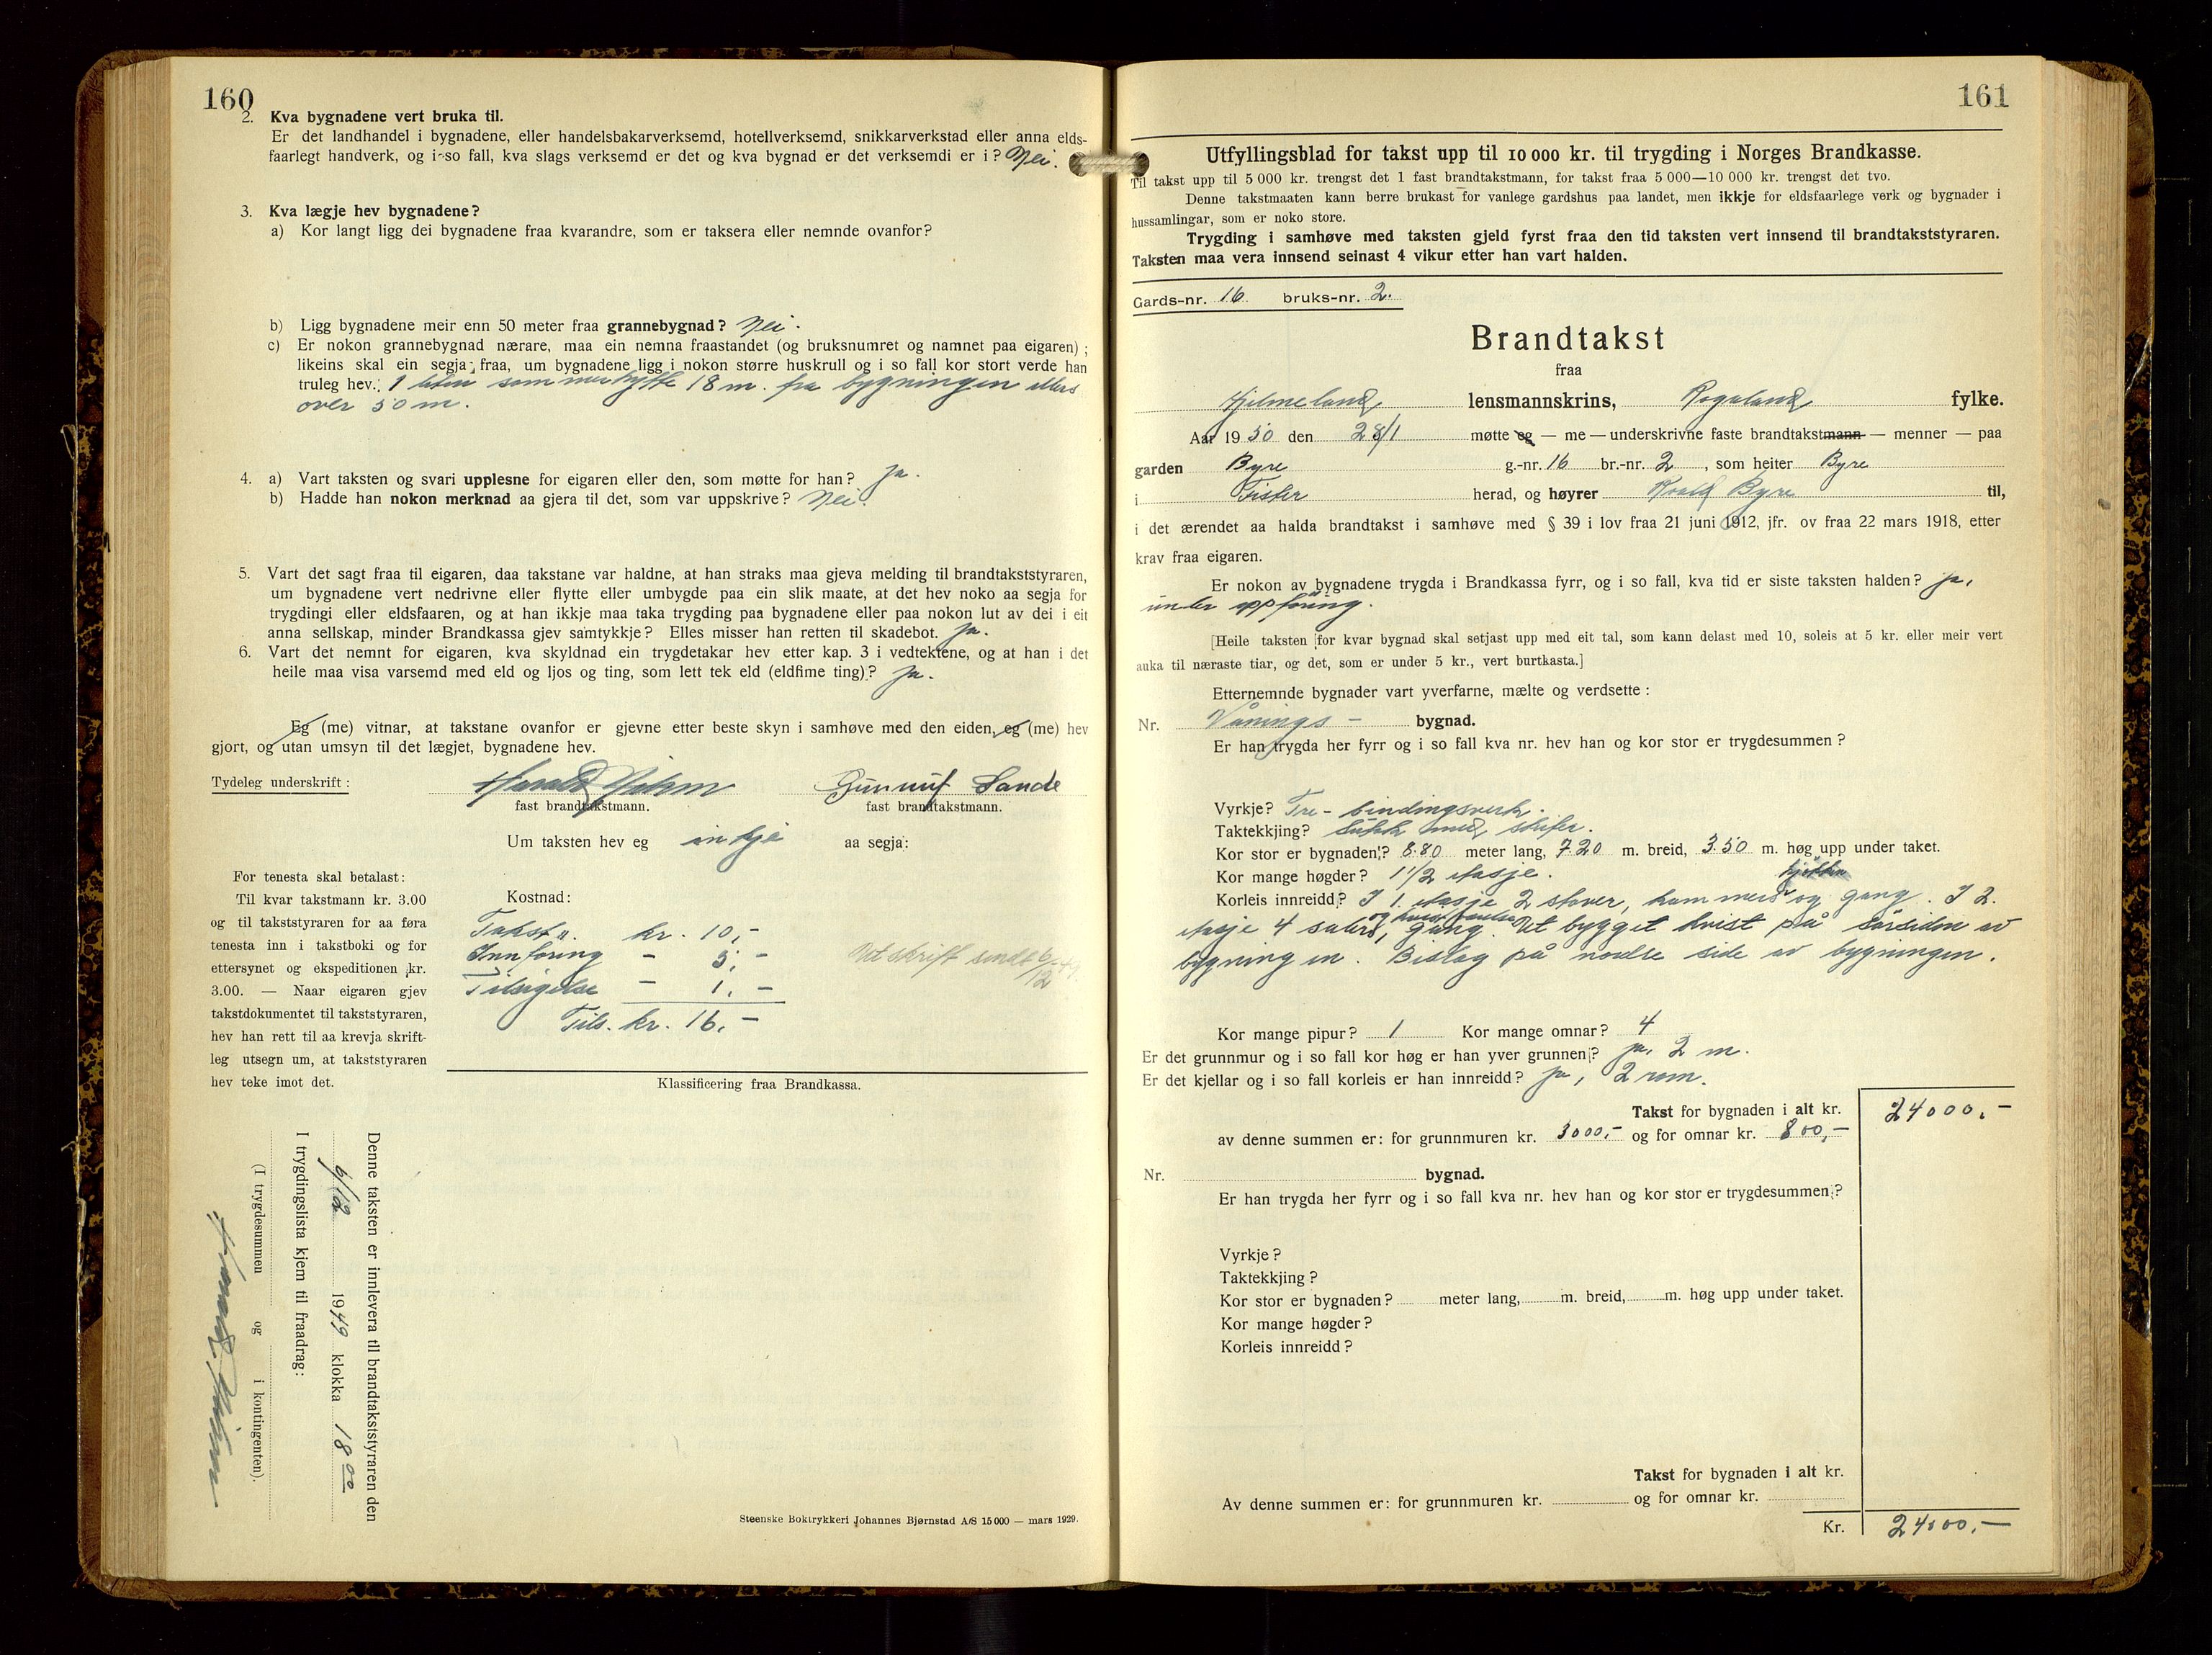 160
2. Kva bygnadene vert bruka til.
Er det landhandel i bygnadene, eller handelsbakarverksemd, hotellverksemd, snikkarverkstad eller anna elds-
faarlegt handverk, og i so fall, kva slags verksemd er det og kva bygnad er det verksemdi er i? Nei.
3. Kva lægje hev bygnadene?
a) Kor langt ligg dei bygnadene fraa kvarandre, som er taksera eller nemnde ovanfor?
b) Ligg bygnadene meir enn 50 meter fraa grannebygnad? Nei.
c) Er nokon grannebygnad nærare, maa ein nemna fraastandet (og bruksnumret og namnet paa eigaren);
likeins skal ein segja fraa, um bygnadene ligg i nokon større huskrull og i so fall kor stort verde han
truleg hev. 1 liten sommerhytte 18 m. fra bygningen ellers
over 50 m.
4. a) Vart taksten og svari upplesne for eigaren eller den, som møtte for han? Ja.
b) Hadde han nokon merknad aa gjera til det, som var uppskrive? Nei.
5. Vart det sagt fraa til eigaren, daa takstane var haldne, at han straks maa gjeva melding til brandtakststyraren,
um bygnadene vert nedrivne eller flytte eller umbygde paa ein slik maate, at det hev noko aa segja for
trygdingi eller eldsfaaren, og at han ikkje maa taka trygding paa bygnadene eller paa nokon lut av dei i eit
anna sellskap, minder Brandkassa gjev samtykkje? Elles misser han retten til skadebot. Ja.
6. Vart det nemnt for eigaren, kva skyldnad ein trygdetakar hev etter kap. 3 i vedtektene, og at han i det
heile maa visa varsemd med eld og ljos og ting, som lett tek eld (eldfime ting)? Ja.
Eg (me) vitnar, at takstane ovanfor er gjevne etter beste skyn i samhøve med den eiden, eg (me) hev
gjort, og utan umsyn til det lægjet, bygnadene hev.
Tydeleg underskrift: Harald Gunnulf Sande
fast brandtakstmann. fast brandtakstmann.
Um taksten hev eg inkje aa segja:
For tenesta skal betalast:
Til kvar takstmann kr. 3.00
og til takststyraren for aa føra
tenesta inn i takstboki og for
ettersynet og ekspeditionen kr.
3.00. — Naar eigaren gjev
takstdokumentet til takststyraren,
hev han rett til aa krevja skrift-
leg utsegn um, at takststyraren
hev teke imot det.
Kostnad:
Takst kr. 10,-
Innføring - 5,-
Tilsigelse - 1,-
Tils. kr. 16,-
Utskrift sendt 6/12
Klassificering fraa Brandkassa.
Denne taksten er innlevera til brandtakststyraren den
6/12 1949 klokka 18 00
I trygdingslista kjem til fraadrag:
(I trygdesummen og i kontingenten).
Steenske Boktrykkeri Johannes Bjørnstad A/S 15 000 — mars 1929.
161
Utfyllingsblad for takst upp til 10 000 kr. til trygding i Norges Brandkasse.
Til takst upp til 5 000 kr. trengst det 1 fast brandtakstmann, for takst fraa 5 000—10 000 kr. trengst det tvo.
Denne takstmaaten kann berre brukast for vanlege gardshus paa landet, men ikkje for eldsfaarlege verk og bygnader i
hussamlingar, som er noko store.
Trygding i samhøve med taksten gjeld fyrst fraa den tid taksten vert innsend til brandtakststyraren.
Taksten maa vera innsend seinast 4 vikur etter han vart halden.
Gards-nr. 16 bruks-nr. 2.
Brandtakst
fraa
Hjelmeland lensmannskrins, Rogaland fylke.
Aar 1950 den 28/1 møtte eg — me — underskrivne faste brandtakstmann — menner — paa
garden Byre g.-nr. 16 br.-nr. 2, som heiter Byre
i Fister herad, og høyrer Roald Byre til,
i det ærendet aa halda brandtakst i samhøve med § 39 i lov fraa 21 juni 1912, jfr. ov fraa 22 mars 1918, etter
krav fraa eigaren.
Er nokon av bygnadene trygda i Brandkassa fyrr, og i so fall, kva tid er siste taksten halden? Ja,
under oppføring.
[Heile taksten for kvar bygnad skal setjast upp med eit tal, som kann delast med 10, soleis at 5 kr. eller meir vert
auka til næraste tiar, og det, som er under 5 kr., vert burtkasta.]
Etternemnde bygnader vart yverfarne, mælte og verdsette:
Nr. Vånings- bygnad.
Er han trygda her fyrr og i so fall kva nr. hev han og kor stor er trygdesummen?
Vyrkje? Tre-bindingsverk.
Taktekkjing? Sutak med skifer.
Kor stor er bygnaden? 8.80 meter lang, 7.20 m. breid, 3.50 m. høg upp under taket.
Kor mange høgder? 1 1/2 etasje.
kjøkken
Korleis innreidd? I 1. etasje 2 stover, kammers og gang. I 2.
etasje 4 saler, gang. Ut bygget kvist på sørsiden av
bygningen. Bislag på nordre side av bygningen.
Kor mange pipur? 1 Kor mange omnar? 4
Er det grunnmur og i so fall kor høg er han yver grunnen? Ja, 2 m.
Er det kjellar og i so fall korleis er han innreidd? Ja, 2 rum.
Takst for bygnaden i alt kr. 24000,-
av denne summen er: for grunnmuren kr. 3000,- og for omnar kr. 800,-
Nr. bygnad.
Er han trygda her fyrr og i so fall kva nr. hev han og kor stor er trygdesummen?
Vyrkje?
Taktekkjing?
Kor stor er bygnaden? meter lang, m. breid, m. høg upp under taket.
Kor mange høgder?
Korleis innreidd?
Takst for bygnaden i alt kr.
Av denne summen er: for grunnmuren kr. og for omnar kr.
Kr. 24000,-